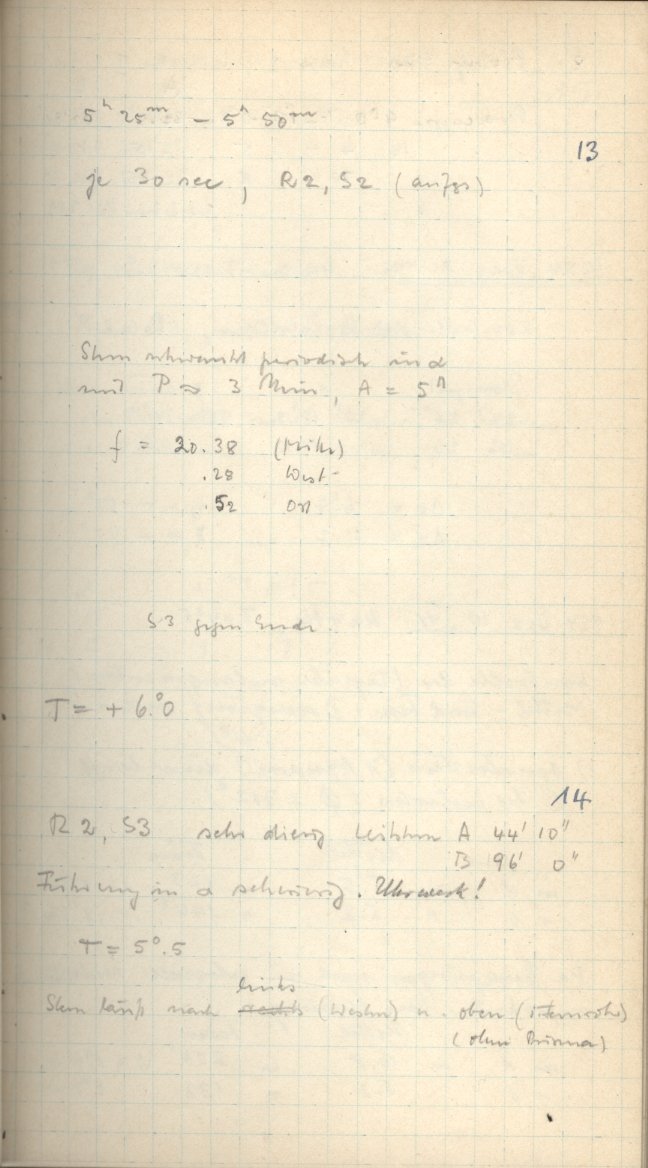 5ʰ 25ᵐ – 5ʰ 50ᵐ
13
je 30 sec, R2, S2 (aufgs)
Stern schwankt periodisch in α
mit P ≈ 3 Min, A = 5"
f = 20.38 (Mitte)
.28 West
.52 Ost
S3 gegen Ende.
T = + 6.°0
14
R 2, S3 sehr diesig Leitstern A 44' 10"
B 96' 0"
Führung in α schwierig. Uhrwerk!
T = 5°.5
links
Stern läuft nach rechts (Westen) u. oben (Fernrohr)
(ohne Prisma)